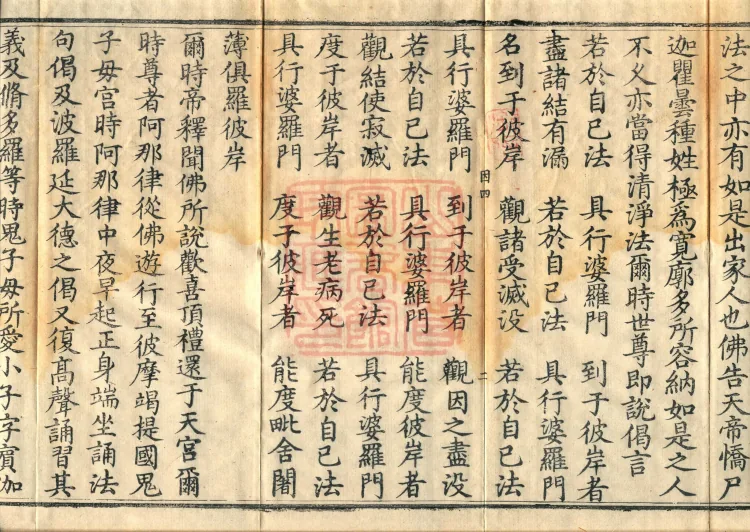 法之中亦有如是出家人也佛告天帝憍尸
迦瞿曇種姓極爲寬廓多所容納如是之人
不乆亦當得清淨法爾時世尊即說偈言
若於自已法　具行婆羅門　到于彼岸者
盡諸結有漏　若於自已法　具行婆羅門
名到于彼岸　觀諸受滅没　若於自已法
困四　二
具行婆羅門　到于彼岸者　觀因之盡没
若於自已法　具行婆羅門　能度彼岸者
觀結使寂滅　若於自已法　具行婆羅門
度于彼岸者　觀生老病死　若於自已法
具行婆羅門　度于彼岸者　能度毗舍闍
薄俱羅彼岸
爾時帝釋聞佛所說歡喜頂禮還于天宮爾
時尊者阿那律從佛遊行至彼摩竭提國鬼
子母宮時阿那律中夜早起正身端坐誦法
句偈及波羅延大德之偈又復高聲誦習其
義及脩多羅等時鬼子母所愛小子字賓伽